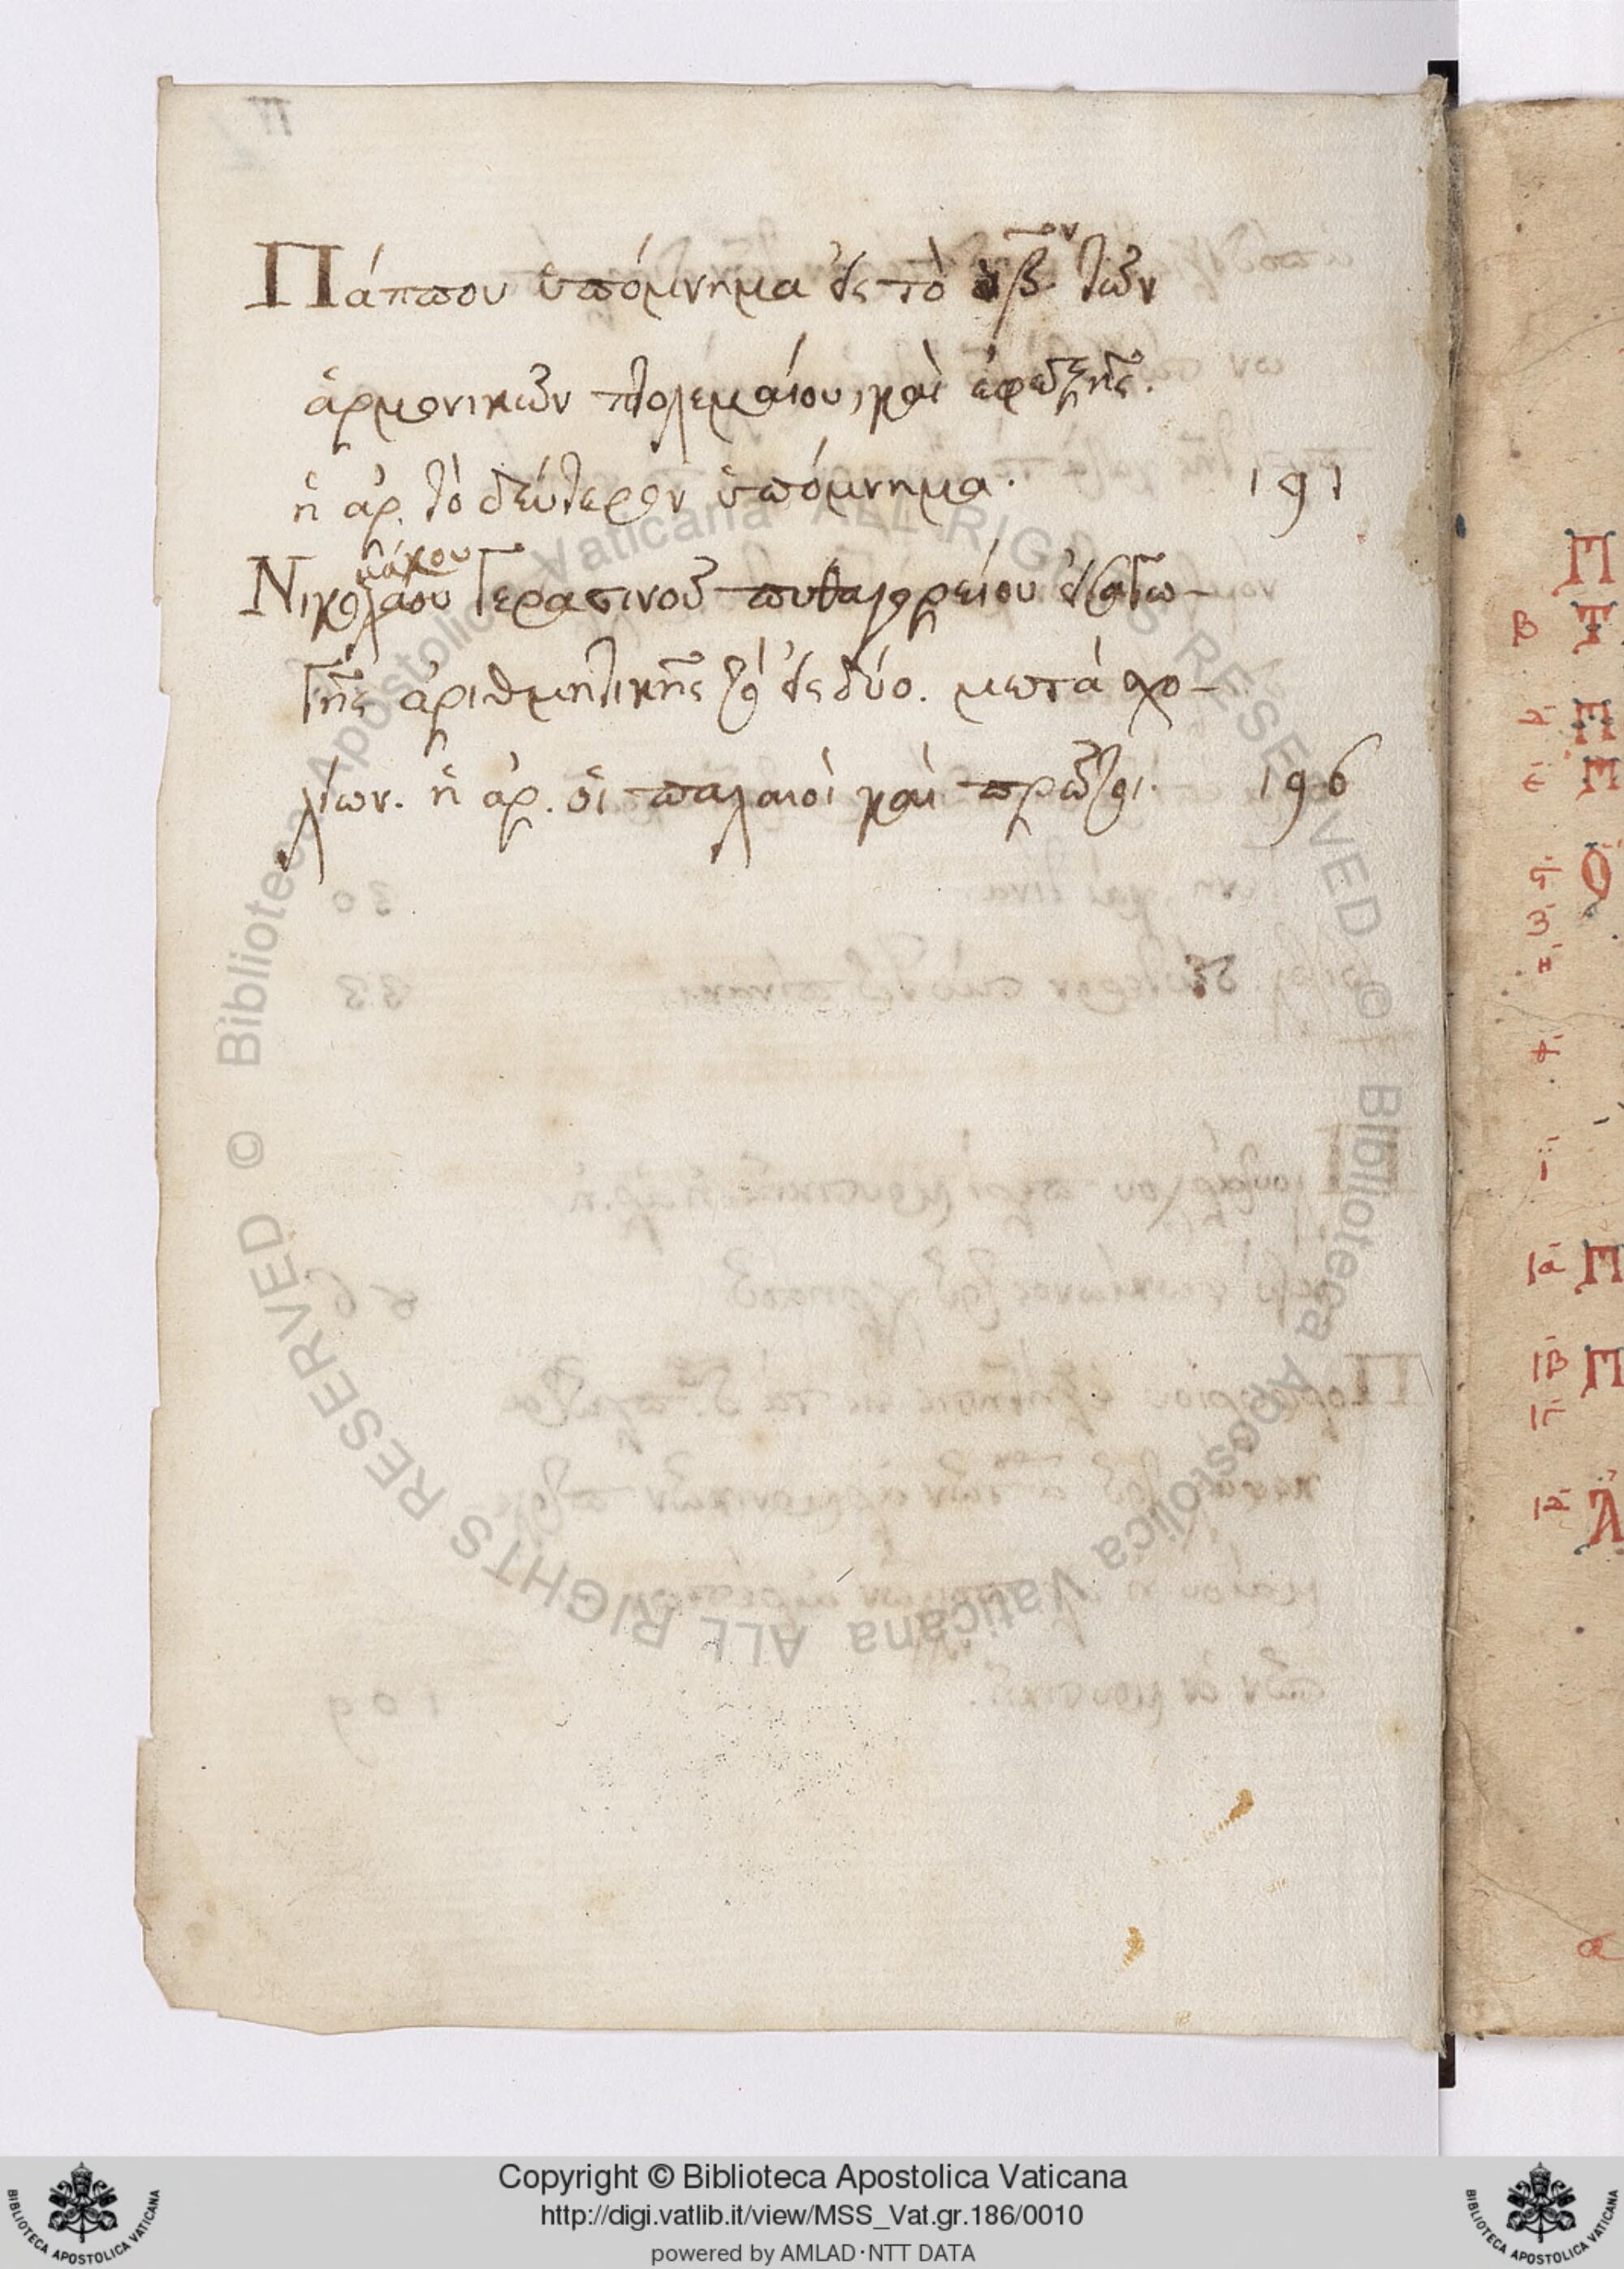 Πάππου ὑπόμνημα εἰς τὸ β̅ον τῶν
ἁρμονικῶν πτολεμαίου, καὶ ἐφεξῆς.
ἡ ἀρ. τὸ δεύτερον ὑπόμνημα. 191
μάχου
Νικολάου Γερασινοῦ πυθαγορείου
τῆς ἀριθμητικῆς τὸ εἰς δύο. μετὰ σχο-
λίων. ἡ ἀρ. οἱ παλαιοὶ καὶ πρῶτοι. 196
Π
β Τ
Π
ε Μ
Ο
ζ
η
ι
ια Π
ιβ Π
ιγ
ιδ Λ
© Biblioteca Apostolica Vaticana ALL RIGHTS RESERVED © Biblioteca Apostolica Vaticana ALL RIGHTS RESERVED
Copyright © Biblioteca Apostolica Vaticana
http://digi.vatlib.it/view/MSS_Vat.gr.186/0010
powered by AMLAD·NTT DATA
BIBLIOTECA APOSTOLICA VATICANA
BIBLIOTECA APOSTOLICA VATICANA